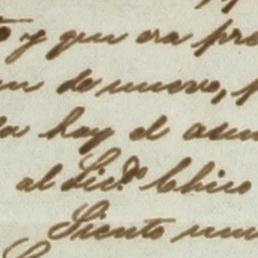 y que era pre
de nuevo, p
hay el asun
al Licdo Chico
Siento mu